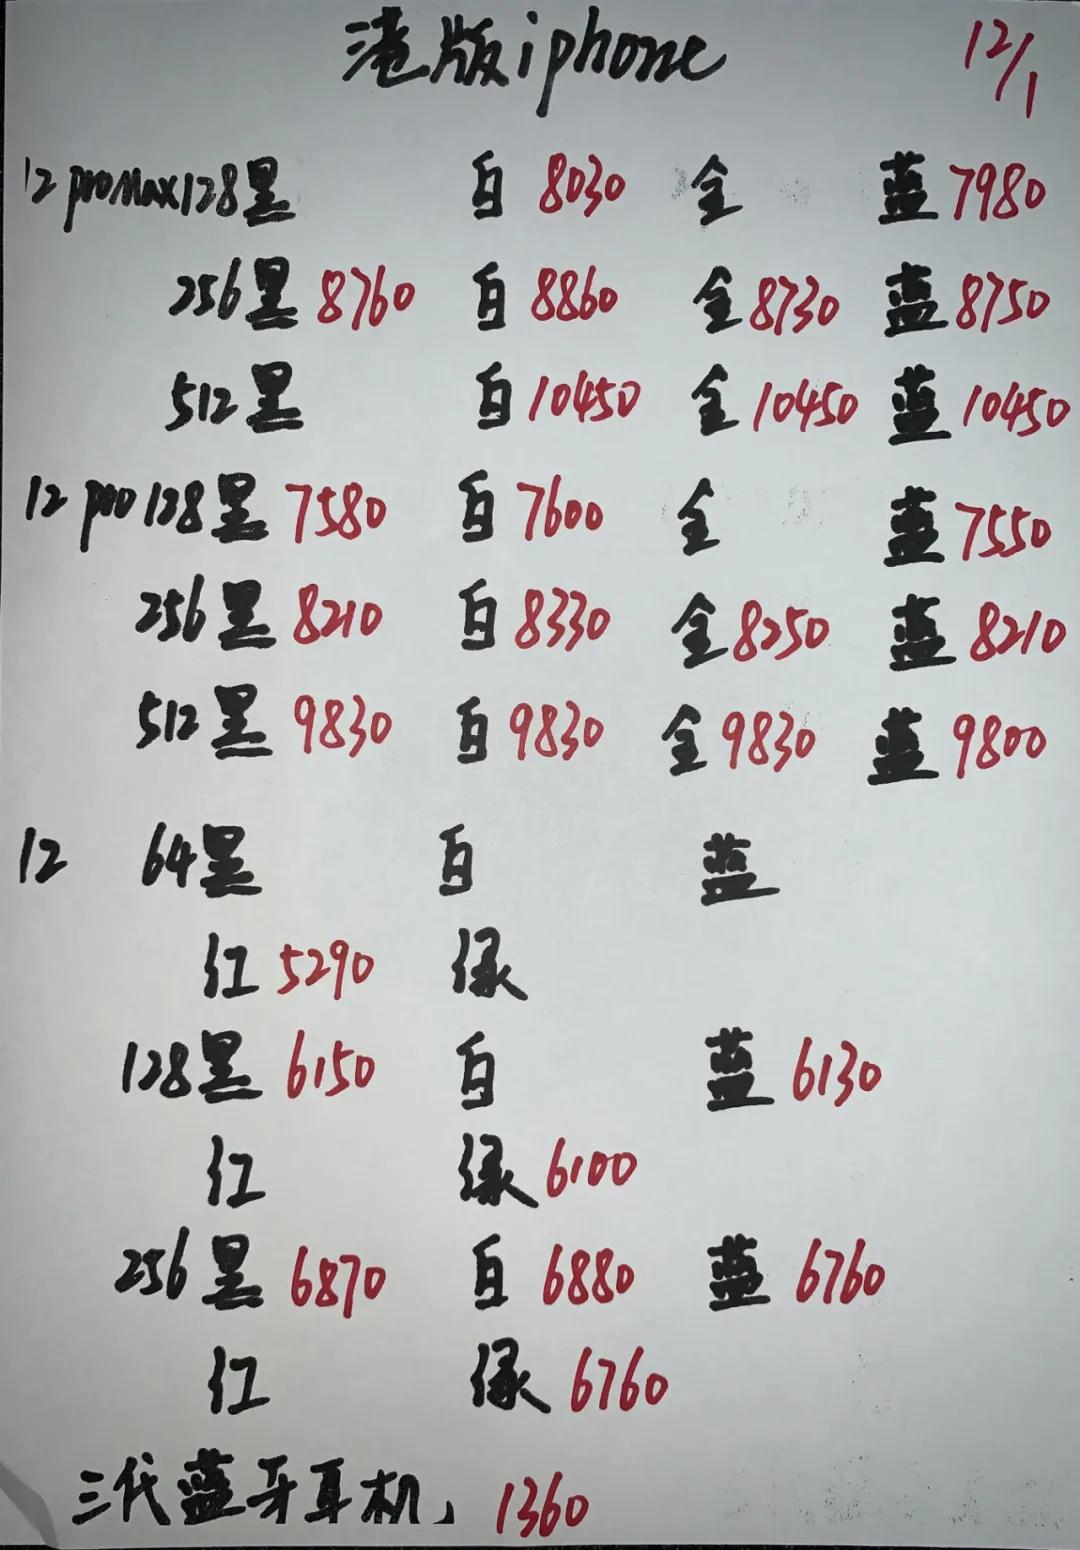 港版iphone 12/1
12 proMax128黑 白 8030 金 蓝 7980
256黑 8760 白 8860 金 8730 蓝 8750
512黑 白 10450 金 10450 蓝 10450
12 pro 128黑 7580 白 7600 金 蓝 7550
256黑 8210 白 8330 金 8250 蓝 8210
512黑 9830 白 9830 金 9830 蓝 9800
12 64黑 白 蓝
红 5290 绿
128黑 6150 白 蓝 6130
红 绿 6100
256黑 6870 白 6880 蓝 6760
红 绿 6760
三代蓝牙耳机, 1360